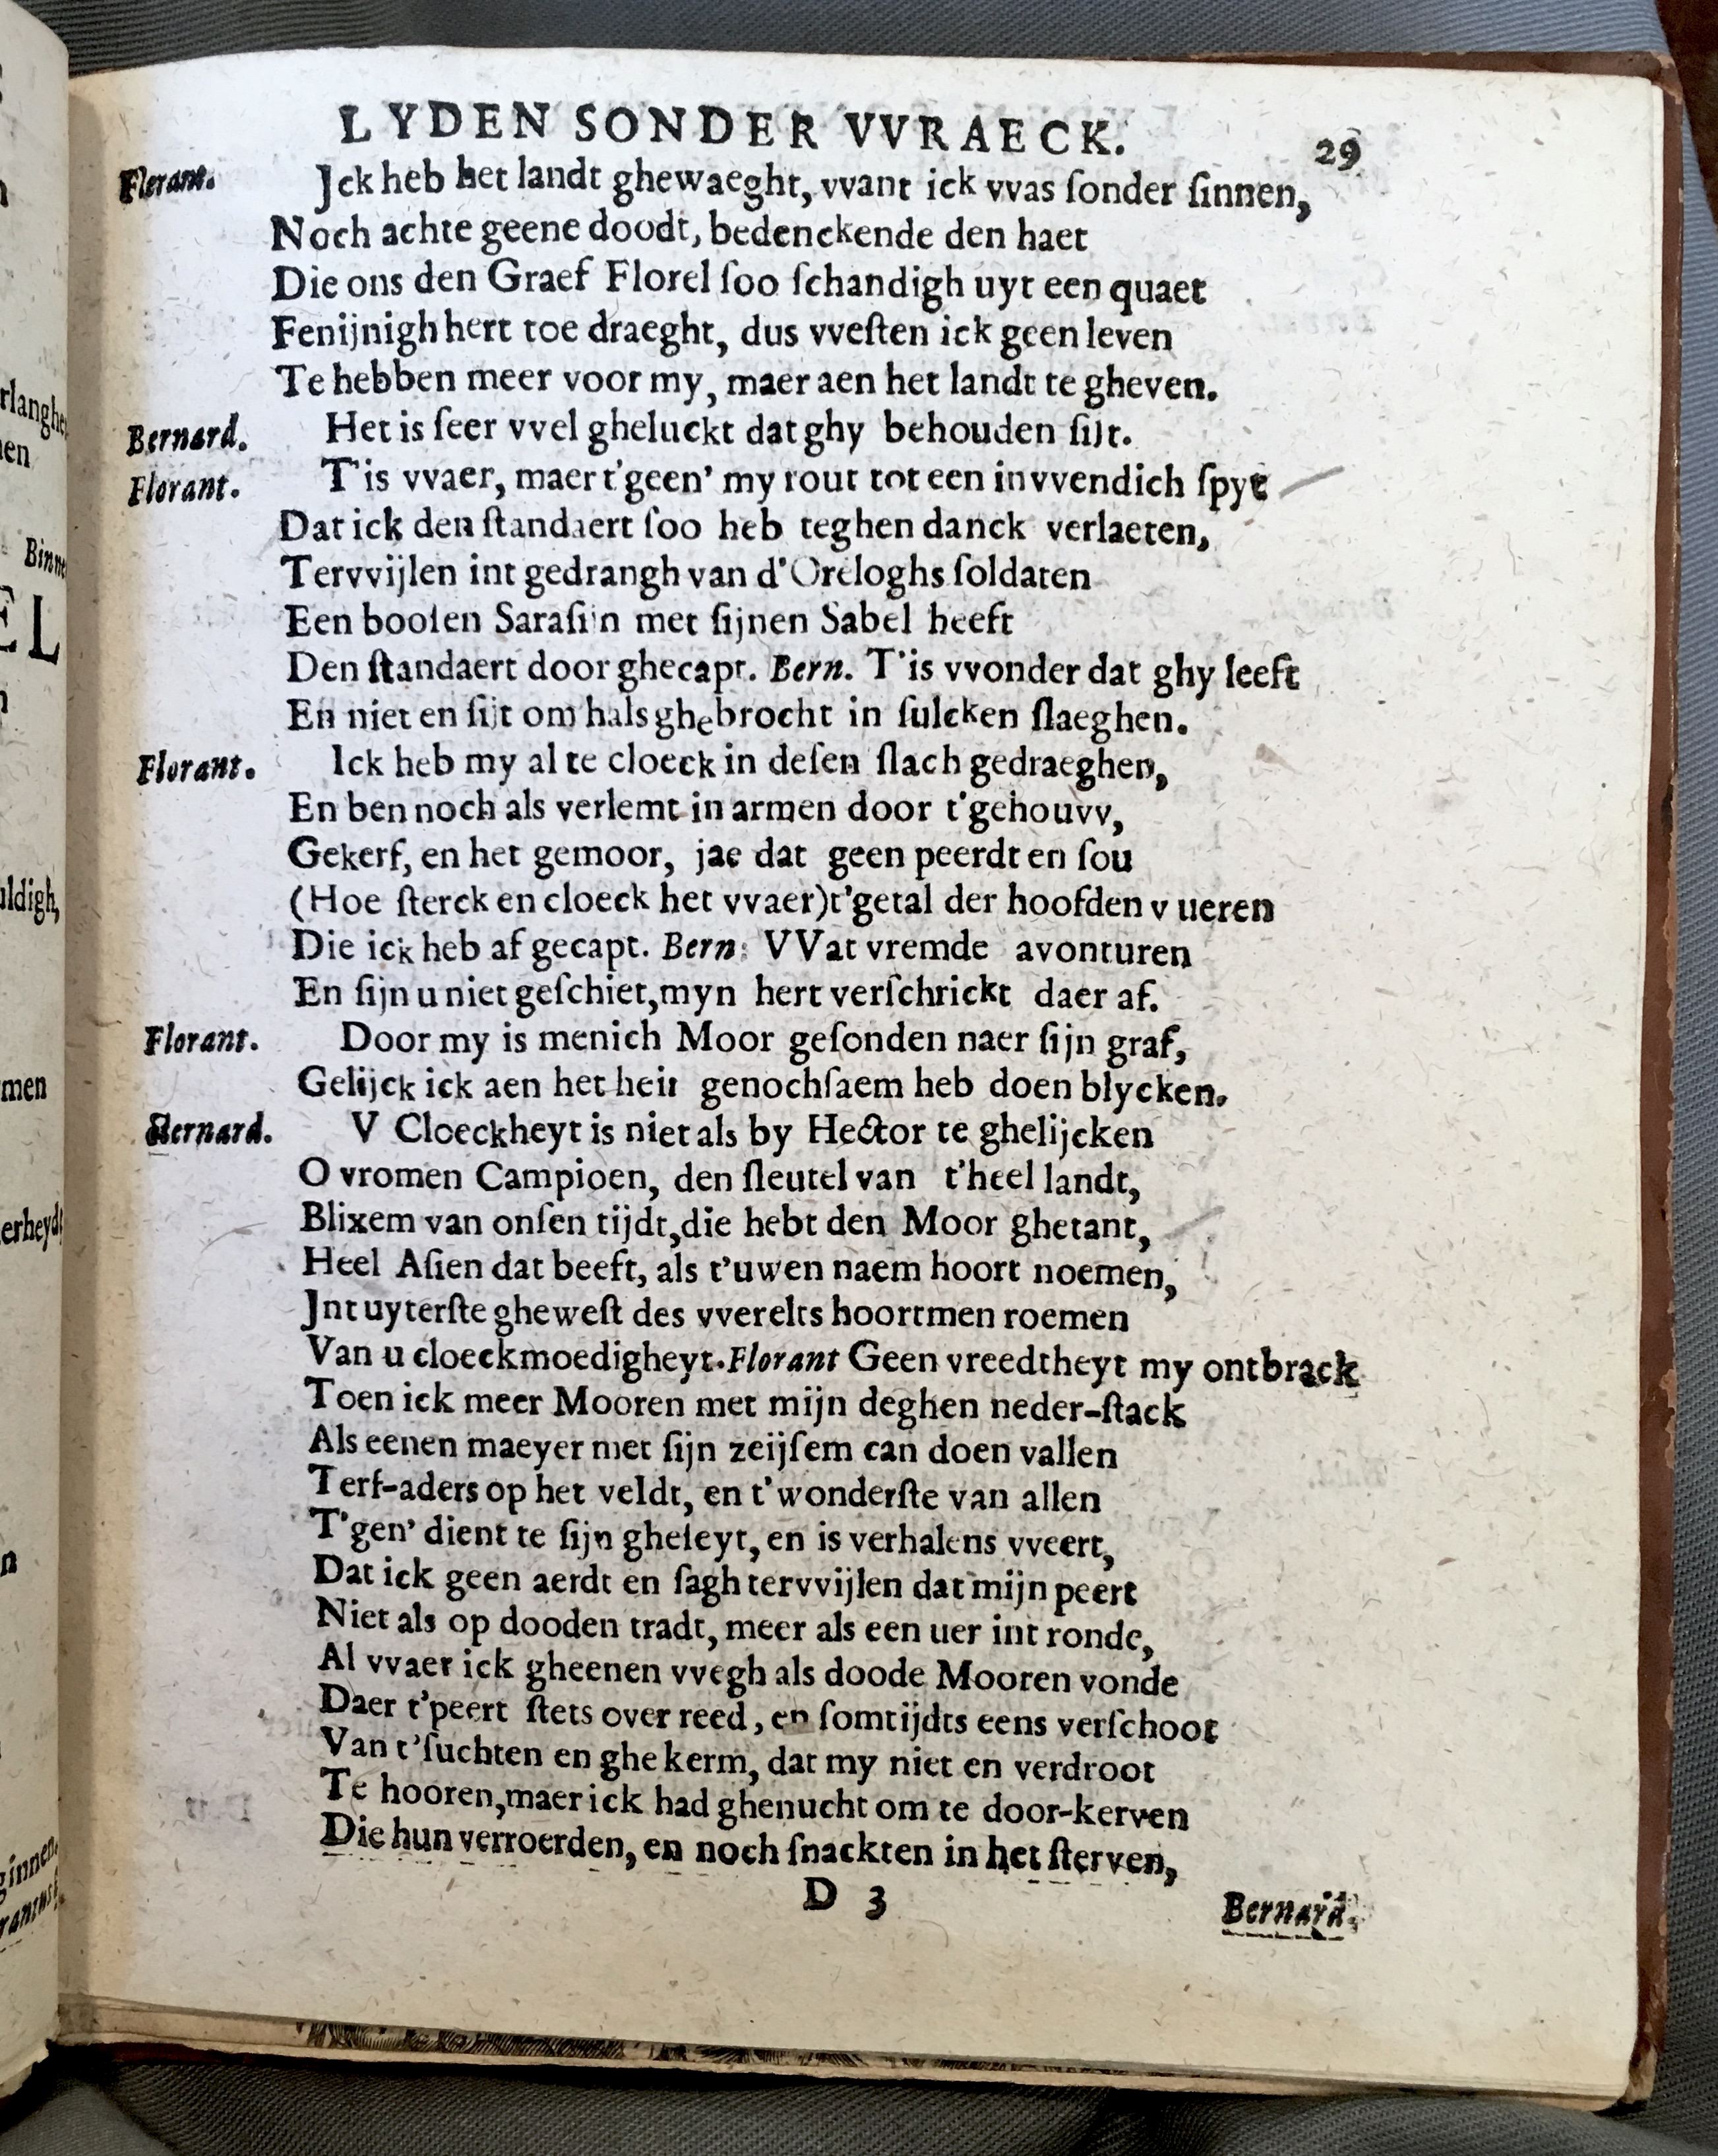 LYDEN SONDER VVRAECK. 29
Florant. Jck heb het landt ghewaeght, vvant ick vvas ſonder ſinnen,
Noch achte geene doodt, bedenckende den haet
Die ons den Graef Florel ſoo ſchandigh uyt een quaet
Fenijnigh hert toe draeght, dus vveſten ick geen leven
Te hebben meer voor my, maer aen het landt te gheven.
Bernard. Het is ſeer vvel gheluckt dat ghy behouden ſijt.
Florant. T'is vvaer, maer t'geen' my rout tot een invvendich ſpyt
Dat ick den ſtandaert ſoo heb teghen danck verlaeten,
Tervvijlen int gedrangh van d'Oreloghs ſoldaten
Een booſen Saraſijn met ſijnen Sabel heeft
Den ſtandaert door ghecapt. Bern. T'is vvonder dat ghy leeft
En niet en ſijt om hals ghebrocht in ſulcken ſlaeghen.
Florant. Ick heb my al te cloeck in deſen ſlach gedraeghen,
En ben noch als verlemt in armen door t'gehouvv,
Gekerf, en het gemoor, jae dat geen peerdt en ſou
(Hoe ſterck en cloeck het vvaer) t'getal der hoofden vueren
Die ick heb af gecapt. Bern: VVat vremde avonturen
En ſijn u niet geſchiet, myn hert verſchrickt daer af.
Florant. Door my is menich Moor geſonden naer ſijn graf,
Gelijck ick aen het heir genochſaem heb doen blycken.
Bernard. V Cloeckheyt is niet als by Hector te ghelijcken
O vromen Campioen, den ſleutel van t'heel landt,
Blixem van onſen tijdt, die hebt den Moor ghetant,
Heel Aſien dat beeft, als t'uwen naem hoort noemen,
Jnt uyterſte gheweſt des vverelts hoortmen roemen
Van u cloeckmoedigheyt. Florant Geen vreedtheyt my ontbrack
Toen ick meer Mooren met mijn deghen neder-ſtack
Als eenen maeyer met ſijn zeijſem can doen vallen
Terf-aders op het veldt, en t'wonderſte van allen
T'gen' dient te ſijn gheſeyt, en is verhalens vveert,
Dat ick geen aerdt en ſagh tervvijlen dat mijn peert
Niet als op dooden tradt, meer als een uer int ronde,
Al vvaer ick gheenen vvegh als doode Mooren vonde
Daer t'peert ſtets over reed, en ſomtijdts eens verſchoot
Van t'ſuchten en ghekerm, dat my niet en verdroot
Te hooren, maer ick had ghenucht om te door-kerven
Die hun verroerden, en noch ſnackten in het ſterven,
D 3 Bernard.